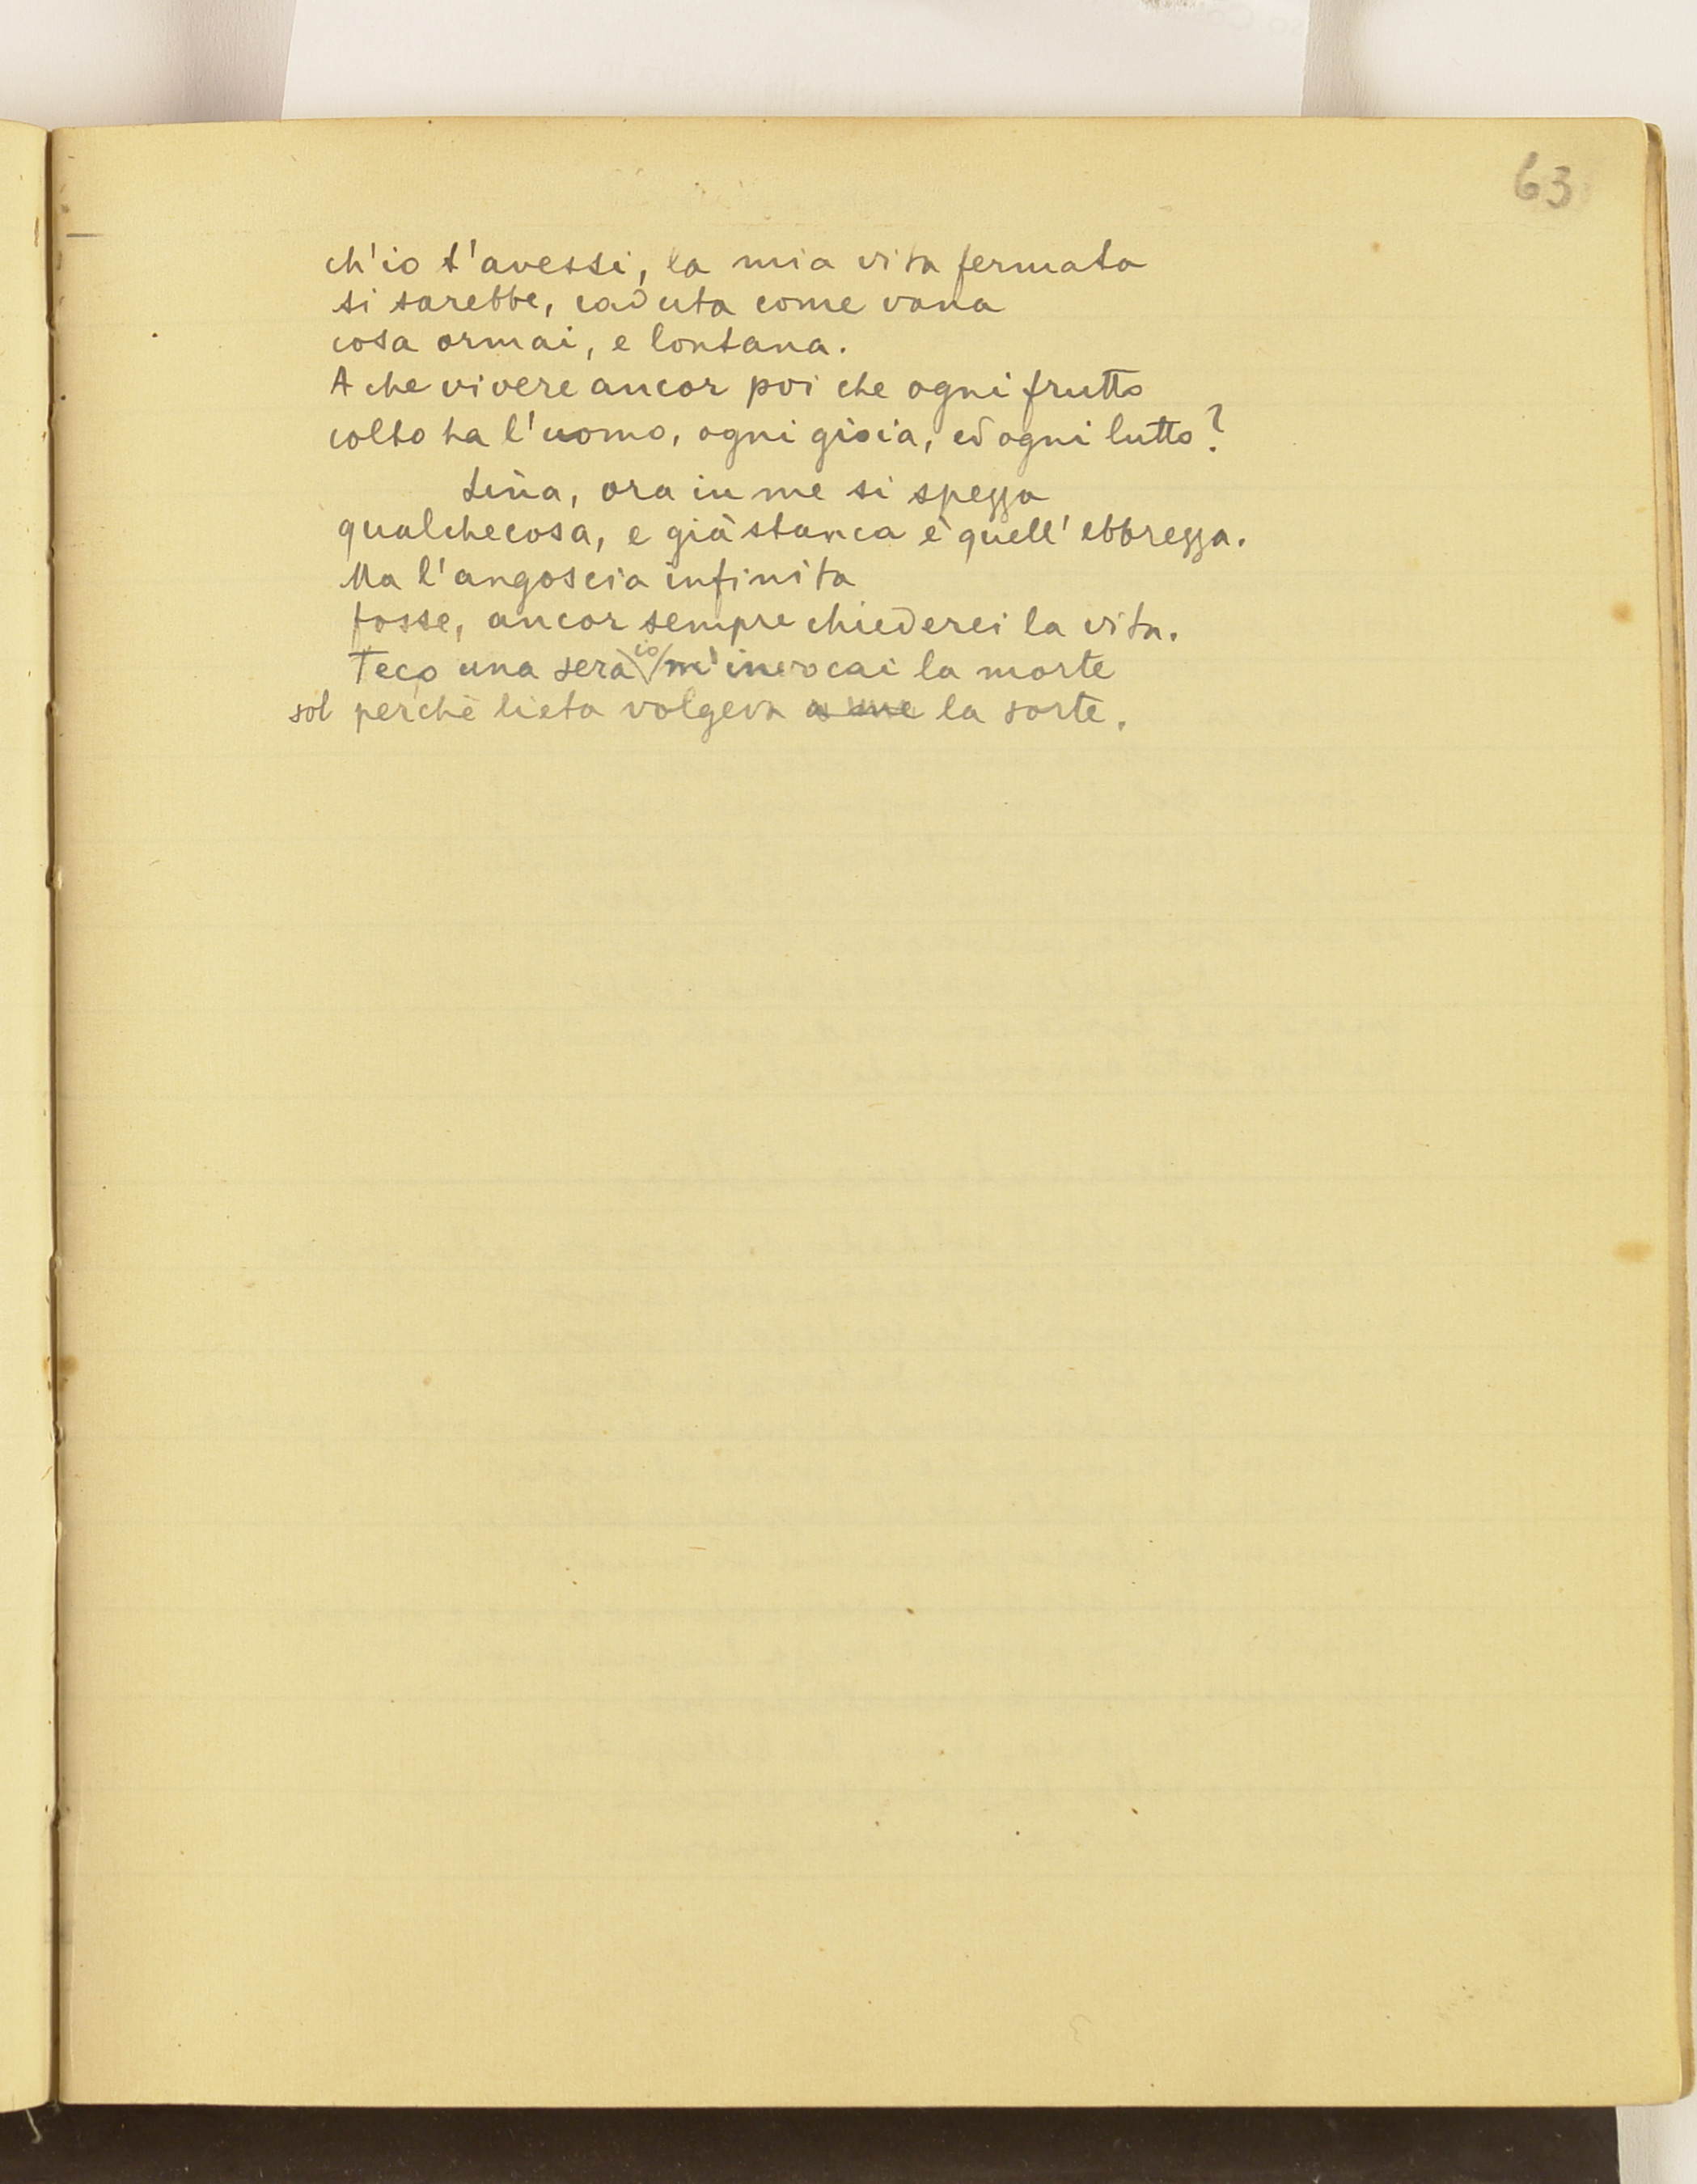 63
ch'io t'avessi, la mia vita fermata
si sarebbe, caduta come vana
cosa ormai, e lontana.
A che vivere ancor poi che ogni frutto
colto ha l'uomo, ogni gioia, ed ogni lutto?
Lina, ora in me si spezza
qualchecosa, e già stanca è quell'ebbrezza.
Ma l'angoscia infinita
fosse, ancor sempre chiederei la vita.
Teco una sera io m'invocai la morte
sol perchè lieta volgeva a me la sorte.